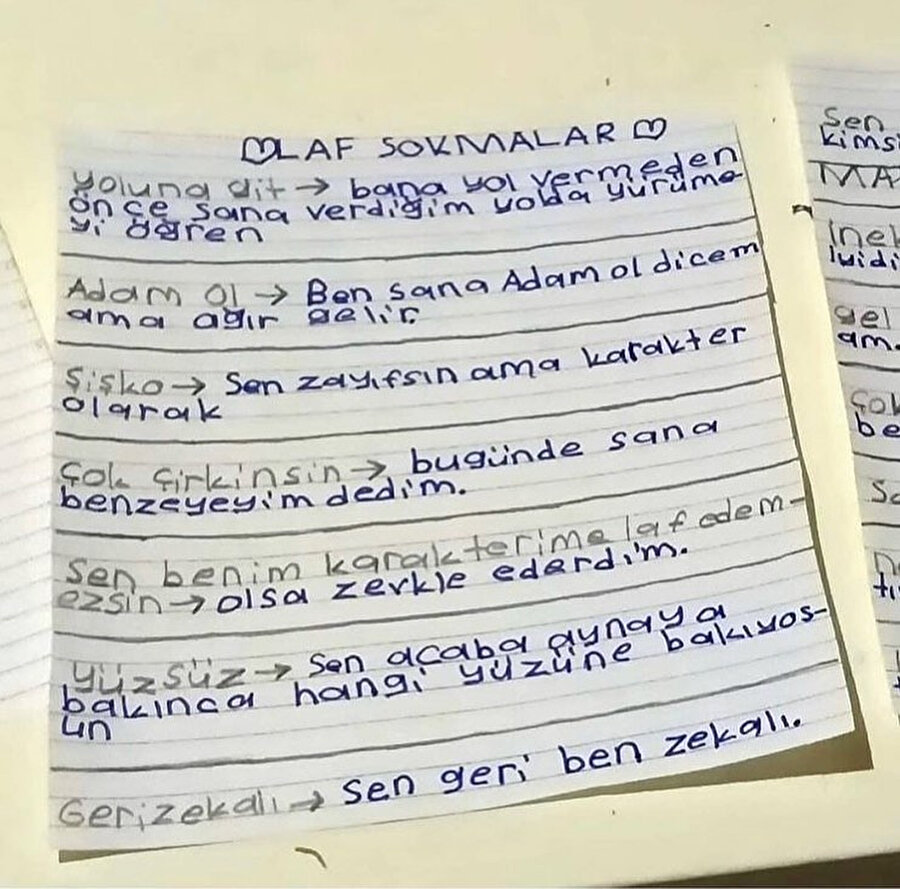 LAF SOKMALAR
yoluna git → bana yol vermeden
önce sana verdiğim yolda yürüme-
yi öğren
Adam ol → Ben sana Adam ol dicem
ama ağır gelir.
Şişko → Sen zayıfsın ama karakter
olarak
Çok çirkinsin → bugünde sana
benzeyeyim dedim.
Sen benim karakterime laf edem-
ezsin → olsa zevkle ederdim.
Yüzsüz → Sen acaba aynaya
bakınca hangi yüzüne bakıyos-
un
Gerizekalı → Sen geri ben zekalı.
Sen
kims
MA
inek
gel
am.
çok
be